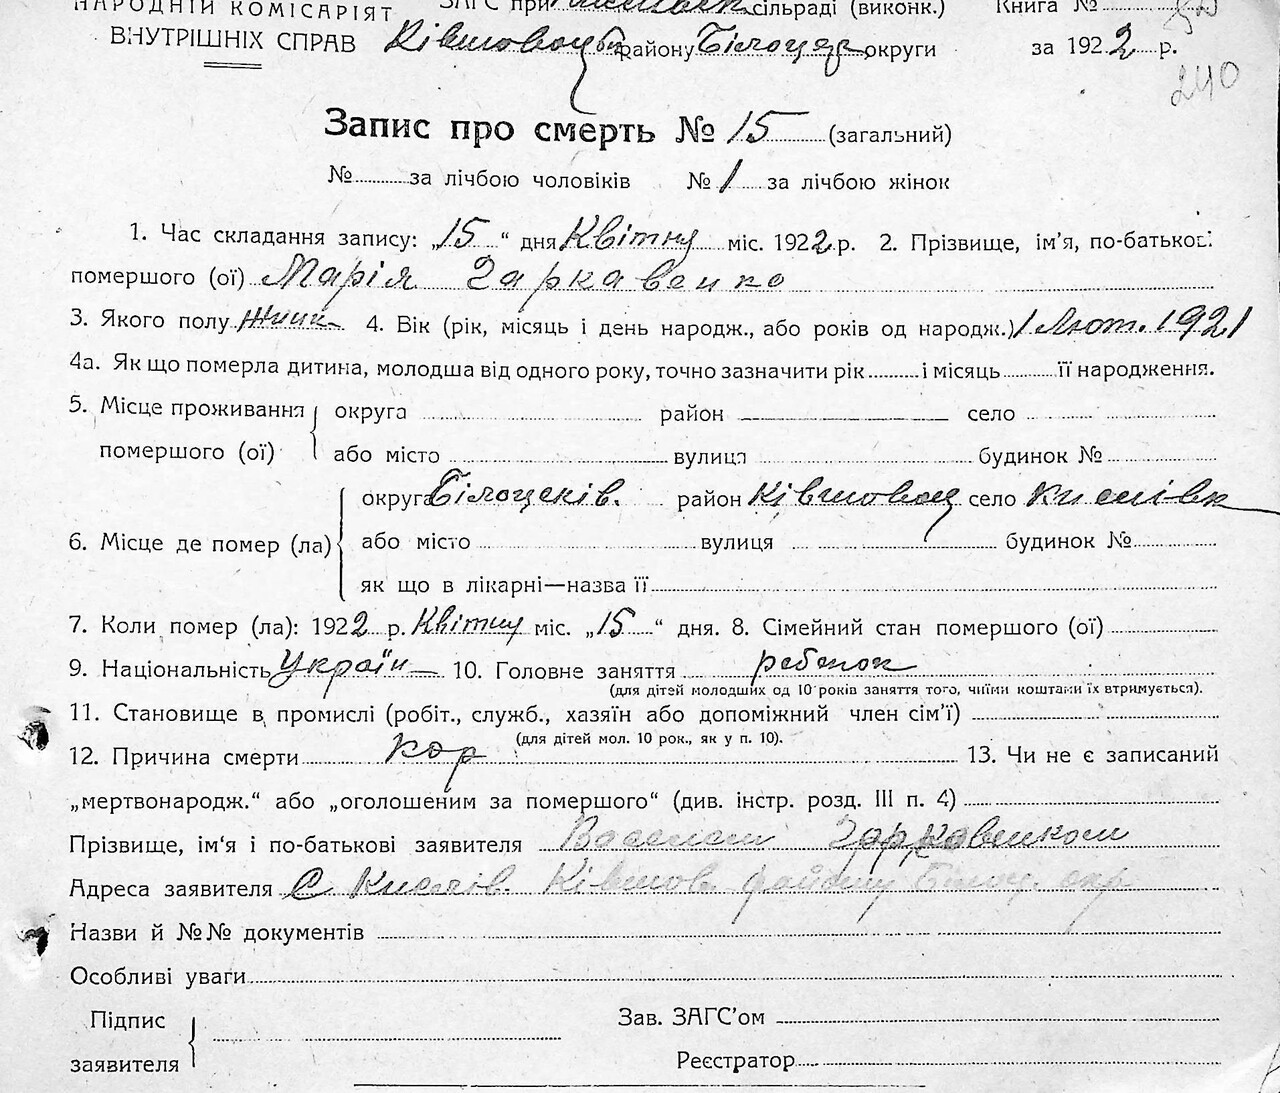 НАРОДНІЙ КОМІСАРІЯТ ЗАГС при сільраді (виконк.) Книга №
ВНУТРІШНІХ СПРАВ Ківшоватськ району Білоцер округи за 1922 р.
240
Запис про смерть № 15 (загальний)
№ за лічбою чоловіків № 1 за лічбою жінок
1. Час складання запису: „15“ дня Квітню міс. 1922 р. 2. Прізвище, ім’я, по-батькові
помершого (ої) Марія Заркавенко
3. Якого полу Жінк 4. Вік (рік, місяць і день народж., або років од народж.) 1 Лют. 1921
4а. Як що померла дитина, молодша від одного року, точно зазначити рік і місяць її народження.
5. Місце проживання помершого (ої) округа район село
або місто вулиця будинок №
6. Місце де помер (ла) округа Білоцеків. район Ківшовац село Кислівк
або місто вулиця будинок №
як що в лікарні—назва її
7. Коли помер (ла): 1922 р. Квітню міс. „15“ дня. 8. Сімейний стан помершого (ої)
9. Національність Україн 10. Головне заняття ребьонок
(для дітей молодших од 10 років заняття того, чиїми коштами їх втримується).
11. Становище в промислі (робіт., служб., хазяїн або допоміжний член сім’ї)
(для дітей мол. 10 рок., як у п. 10).
12. Причина смерти кор 13. Чи не є записаний
„мертвонародж.“ або „оголошеним за помершого“ (див. інстр. розд. III п. 4)
Прізвище, ім‘я і по-батькові заявителя Заркавенком
Адреса заявителя С Кислів. Ківшов. району Білоц. окр
Назви й №№ документів
Особливі уваги
Підпис заявителя
Зав. ЗАГС’ом
Реєстратор